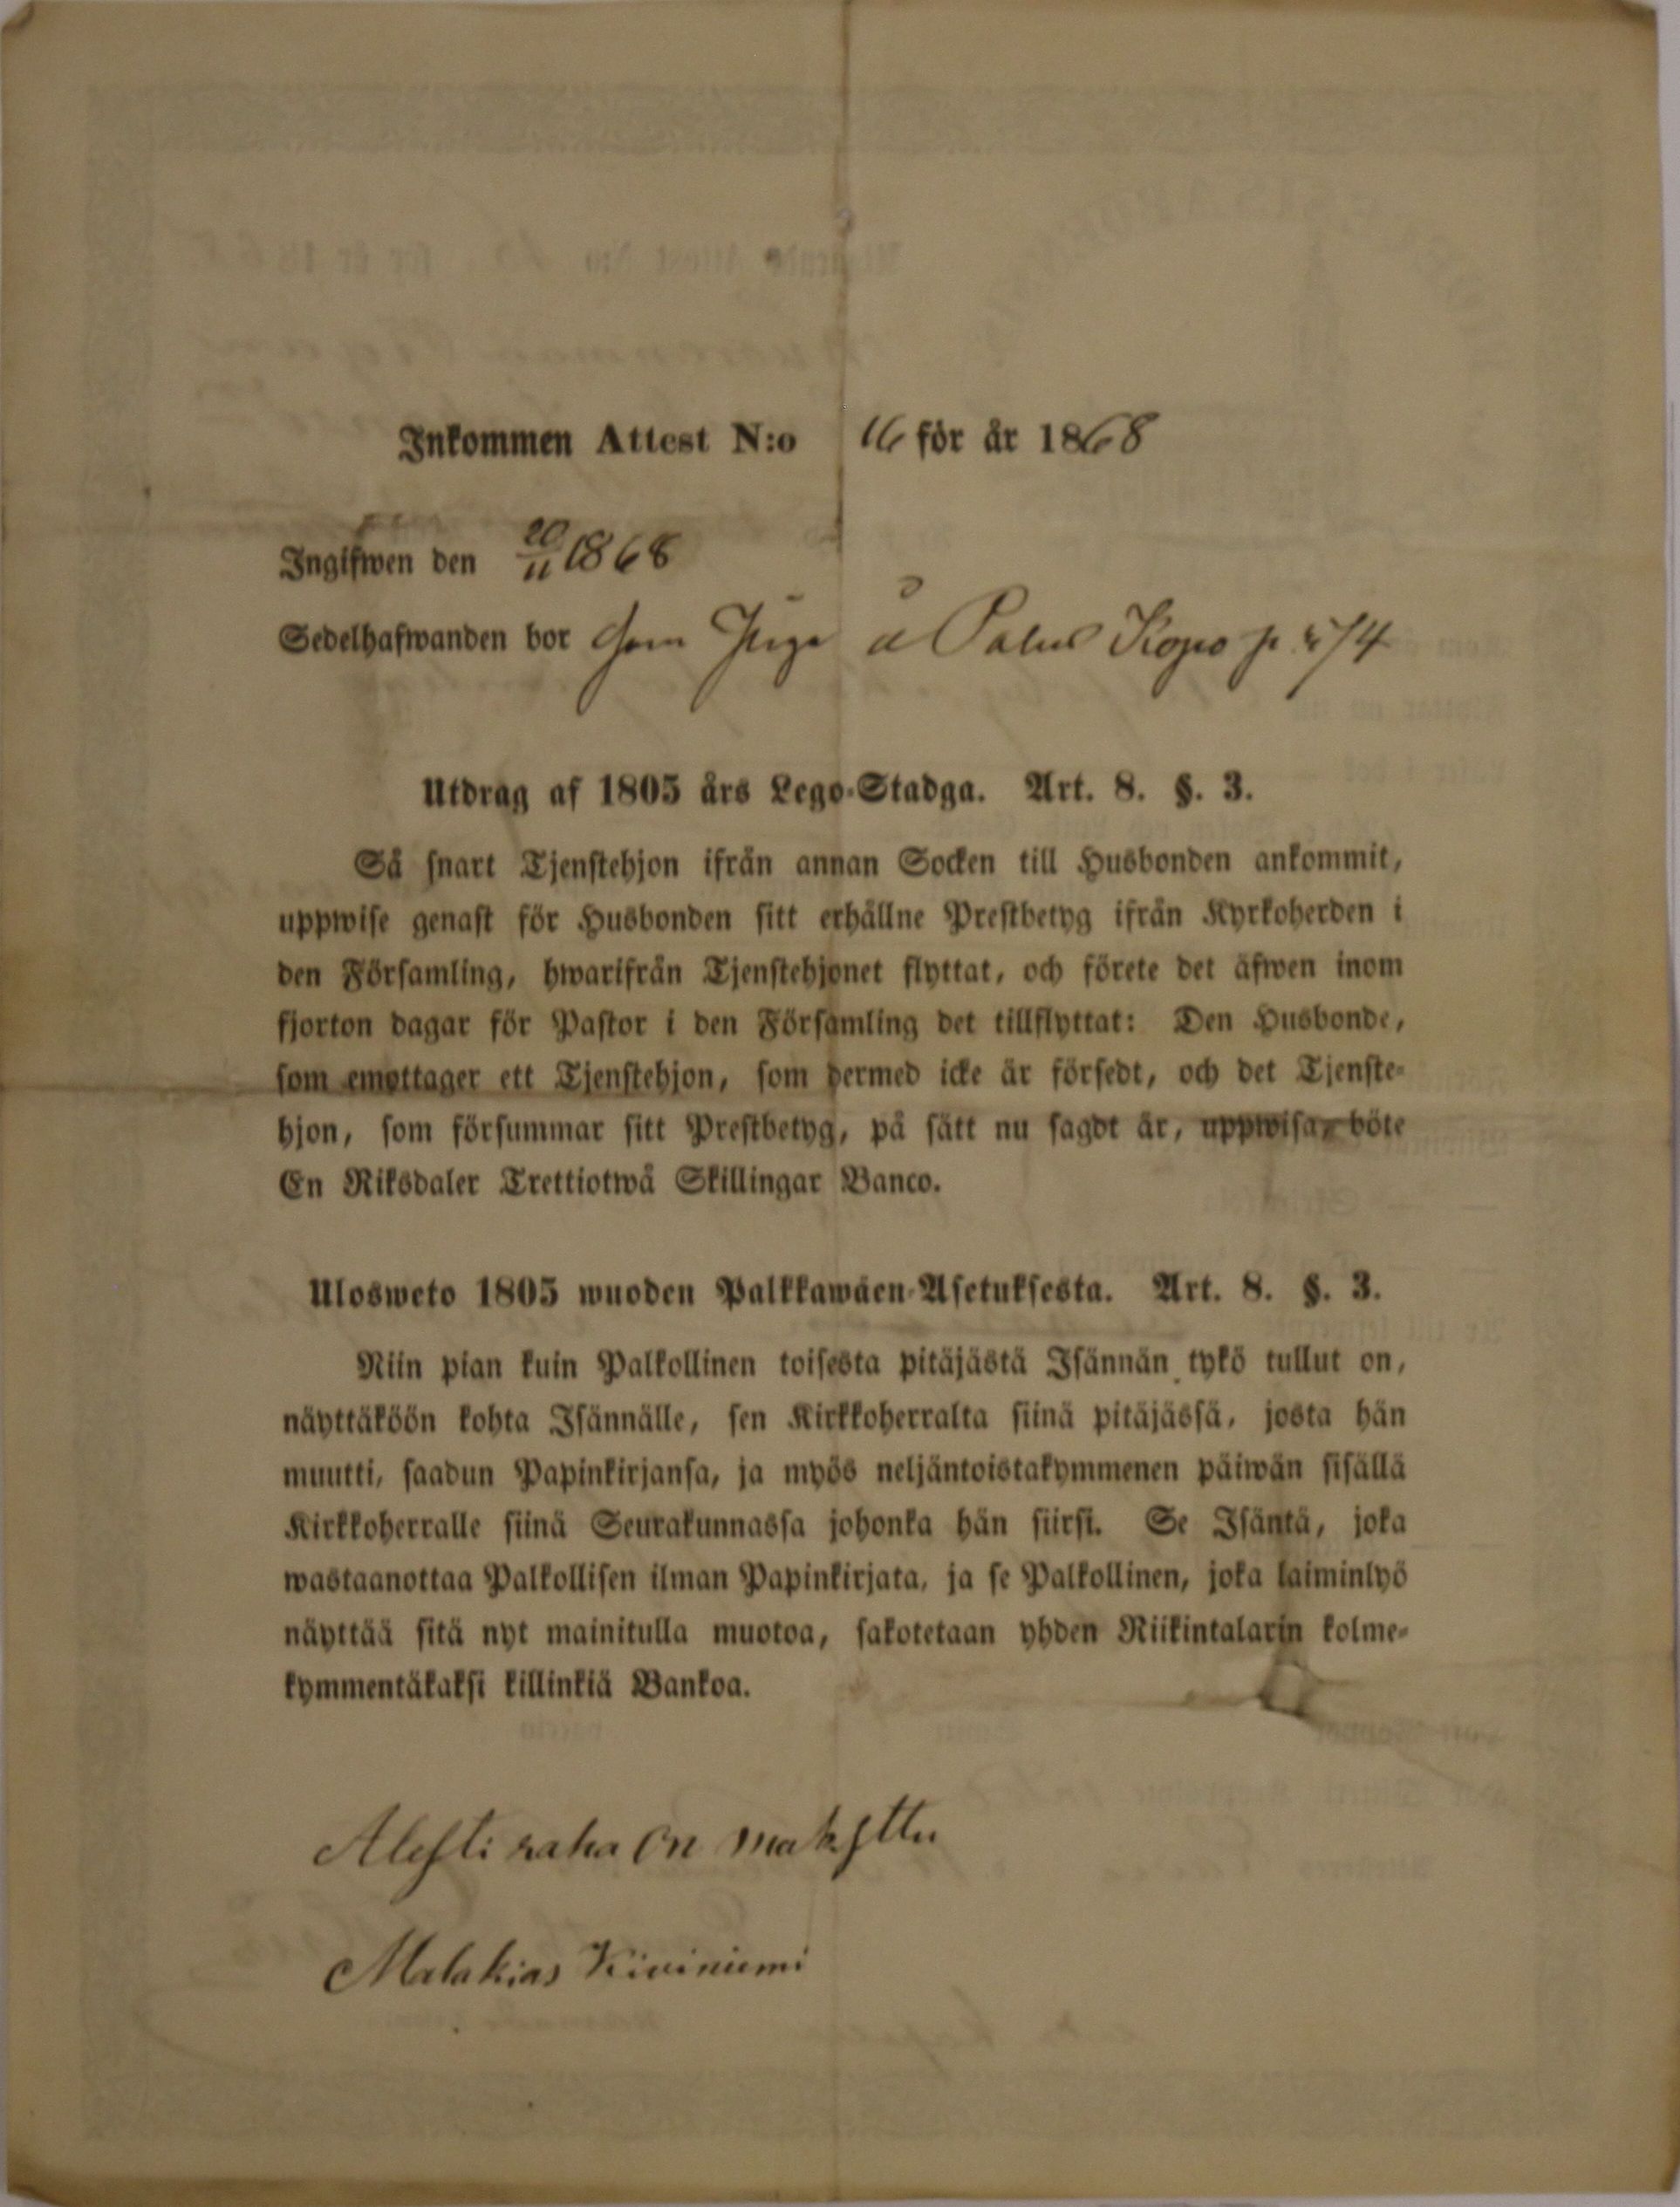 Inkommen Attest N:o 16 för år 1868
Ingifwen den 20/11 1868
Sedelhafwanden bor som å
Utdrag af 1805 års Lego-Stadga. Art. 8. §. 3.
Så snart Tjenstehjon ifrån annan Socken till Husbonden ankommit,
uppwise genast för Husbonden sitt erhållne Prestbetyg ifrån Kyrkoherden i
den Församling, hwarifrån Tjenstehjonet flyttat, och förete det äfwen inom
fjorton dagar för Pastor i den Församling det tillflyttat: Den Husbonde,
som emottager ett Tjenstehjon, som dermed icke är försedt, och det Tjenste-
hjon, som försummar sitt Prestbetyg, på sätt nu sagdt är, uppwisa, böte
En Riksdaler Trettiotwå Skillingar Banco.
Ulosweto 1805 wuoden Palkkawäen-Asetuksesta. Art. 8. §. 3.
Niin pian kuin Palkollinen toisesta pitäjästä Isännän tykö tullut on,
näyttäköön kohta Isännälle, sen Kirkkoherralta siinä pitäjässä, josta hän
muutti, saadun Papinkirjansa, ja myös neljäntoistakymmenen päiwän sisällä
Kirkkoherralle siinä Seurakunnassa johonka hän siirsi. Se Isäntä, joka
wastaanottaa Palkollisen ilman Papinkirjata, ja se Palkollinen, joka laiminlyö
näyttää sitä nyt mainitulla muotoa, sakotetaan yhden Riikintalarin kolme-
kymmentäkaksi killinkiä Bankoa.
Alesti raha On maksttu
Malakias Kiviniemi